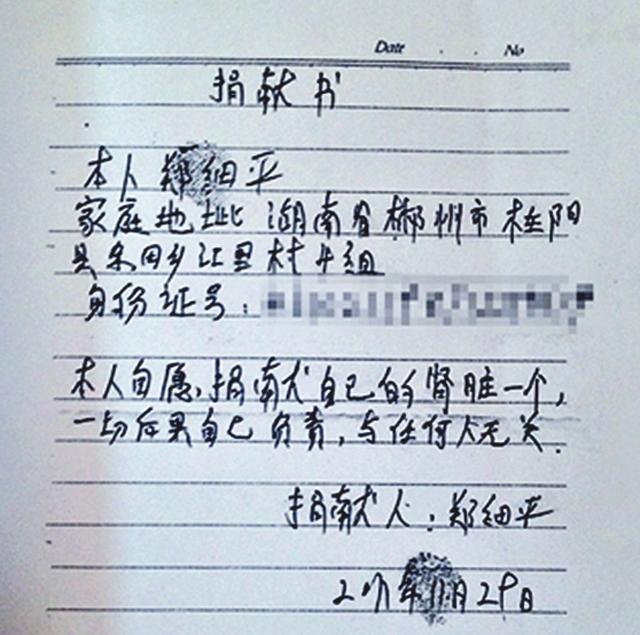 Date . . No
捐献书
本人郑细平
家庭地址 湖南省郴州市桂阳
县 回乡江里村4组
身份证号:
本人自愿,捐献自己的肾脏一个,
一切后果自己负责,与任何人无关.
捐献人:郑细平
年11月29日